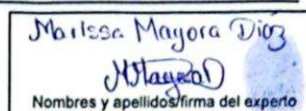 Marissa Mayora Díaz
MMayoraD
Nombres y apellidos/firma del experto